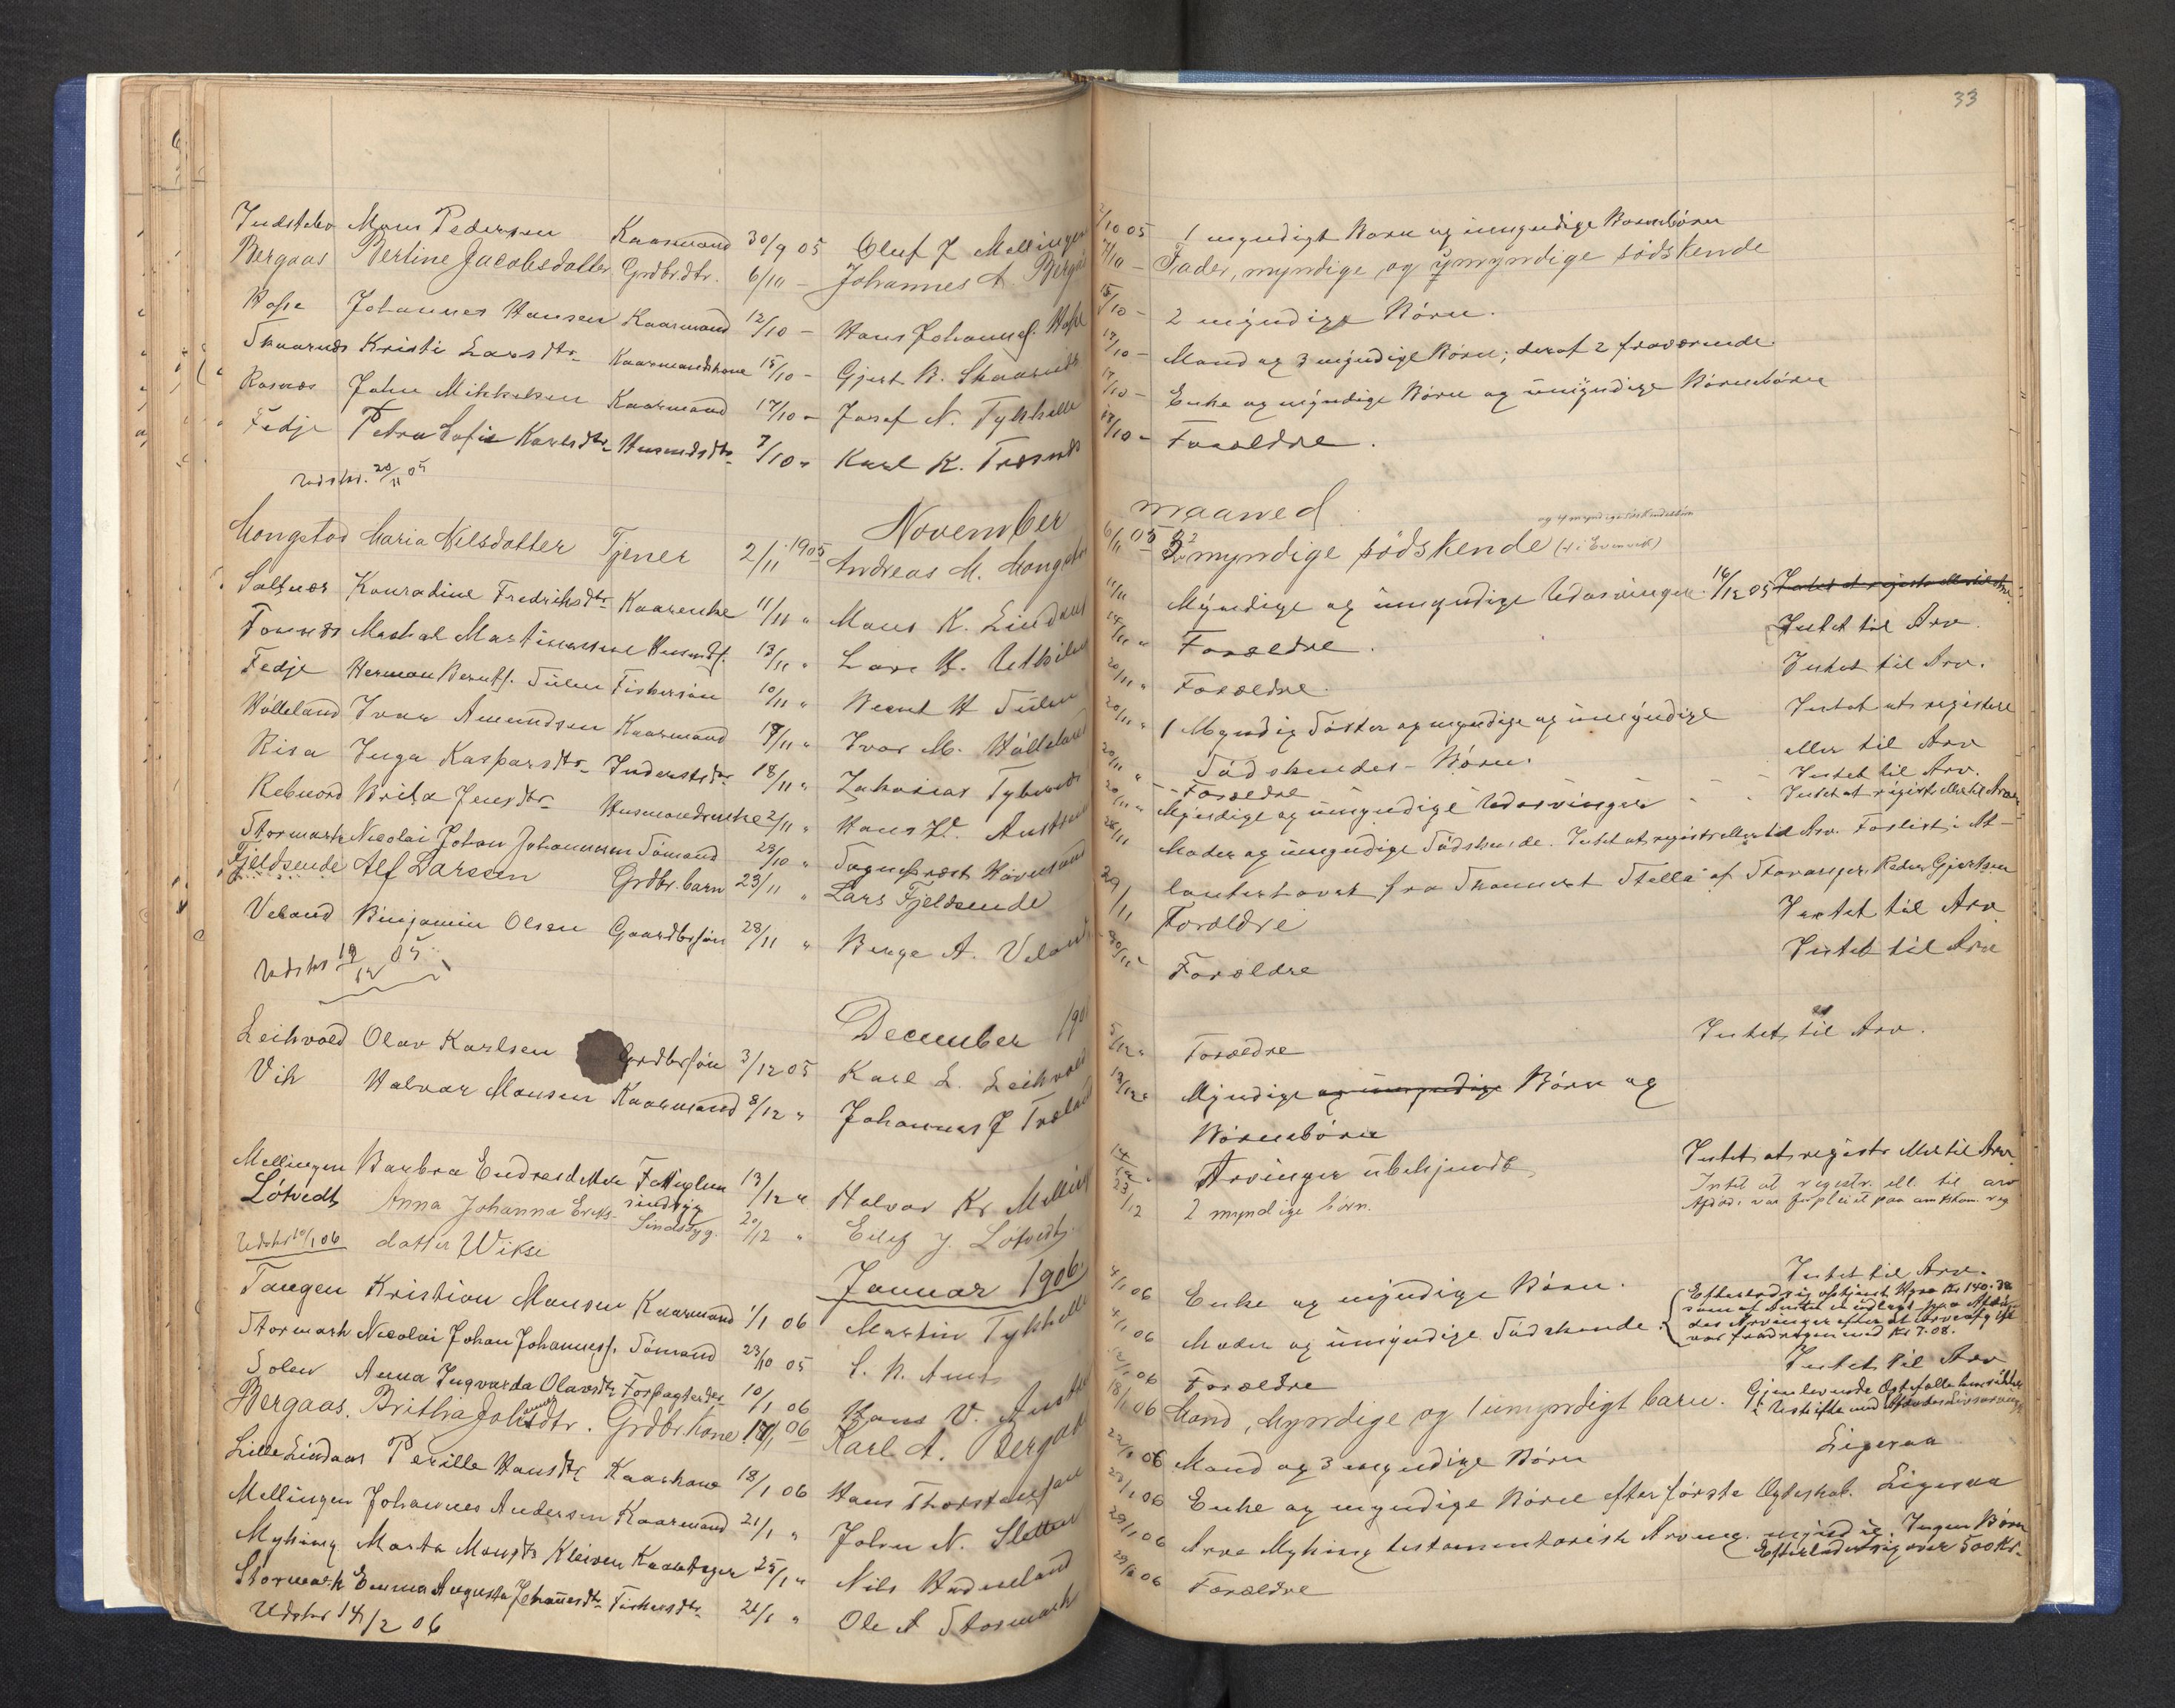 33
Indstebø Mons Pedersen Kaarmand 30/9 05 Oluf J Mellingen 2/10 05 1 myndigt Barn og umyndige Barnebørn
Bergaas Bertine Jacobsdatter Grdbr.dtr. 6/10 – Johannes A. Bergaas 7/10 – Fader, myndige og umyndige södskende
Johannes Hansen Kaarmand 12/10 – Hans Johannes. 15/10 – 2 myndige Börn.
Skaarnes Kristi Larsdtr Kaarmandskone 15/10 – Gjert B. Skaarnes 17/10 – Mand og 3 myndige Börn; deraf 2 fraværende.
Rosnes John Mikkelsen Kaarmand 17/10 – Josef N. Tykhelle 17/10 – Enke og myndige Börn og umyndige Börnebörn
Fedje Petra Sofie Karlsdtr Husmdsdtr 7/10 „ Karl K. Træsnes 17/10 – Forældre.
Udskr. 20/11 05
November maaned
og 4 myndige södskendebörn
Mongstad Maria Nilsdatter Tjener 2/11 1905 Andreas M. Mongstad 6/11 05 2 myndige södskende (4 i Evenvik)
Saltnes Konradine Fredriksdtr Kaarenke 11/11 „ Mons K. Lindaas 11/11 Myndige og umyndige Udarvinger. 16/12 05 Intet at registr. eller til Arv.
Intet til Arv.
Fonnes Meshak Martinussen Husmdsf. 13/11 „ Lars H. Utkilen 14/11 „ Forældre. Intet til Arv.
Fedje Herman Berntf. Sulen Fiskersön 10/11 „ Bernt H Sulen 20/11 „ Forældre. Intet at registere
Hölleland Ivar Amundsen Kaarmand 17/11 „ Ivar M. Hölleland 20/11 „ 1 Myndig Söster og myndige og umyndige eller til Arv
Södskendes-Börn.
Risa Inga Kaspersdtr Inderstsdtr 18/11 „ Zakarias Tybernes 20/11 „ Forældre Intet til Arv.
Rebnord Brita Jensdtr Husmandsenke 2/11 „ Hans V. Austrem 20/11 „ Myndige og umyndige Udarvinger Intet at registr eller til Arv
Stormark Nicolai Johan Johannessen Sömand 23/10 „ Sogneprest Hövesand 28/11 Moder og umyndige Södskende. Intet at registr. eller til Arv. Forlist i At-
lanterhavet fra Skonnert Stella af Stavanger, Reder Gjertsen
Fjeldsende Alf Larsen Grdbr.barn 23/11 „ Lars Fjeldsende 29/11 Forældre Intet til Arv
Veland Binjamin Olsen Gaardbrsön 28/11 „ Berge A. Veland 30/11 Forældre Intet til Arv
Udskr 19/12 05
December 190
Leikvold Olav Karlsen Grdbrsön 3/12 05 Karl L. Leikvold 5/12 „ Forældre Intet til Arv.
Vik Halvar Monsen Kaarmand 8/12 „ Johannes J Træland 13/12 „ Myndige og umyndige Börn og
Börnebörn
Mellingen Barbra Endresdatter Fattiglem sindsyg 13/12 „ Halvor Kr. Mellingen 14/12 Arvinger ubekjendt Intet at registr. eller til Arv.
Lötvedt Anna Johanna Eriks- Sindssyg. 20/12 „ Eilef J. Lötvedt. 23/12 2 myndige börn. Intet at registr. ell. til arv
datter Wikse Afdöde var forpleiet paa amtskom. regn
Udskr 10/1 06
Januar 1906.
Tangen Kristian Monsen Kaarmand 1/1 06 Martin Tykhelle 4/1 06 Enke og myndige Börn. Intet til Arv.
Stormark Nicolai Johan Johannesf. Sömand 23/10 05 S. N. Ams 4/1 06 Moder og umyndige Södskende. Efterlod sig optjent Hyre Kr 140.38
som af Amtet er udlagt paa Afdö-
des Arvinger efter at Arveafgift
var fradragen med Kr 7.08.
Solen Anna Ingvarda Olavsdtr Forpagterdtr 10/1 06 Hans V. Austrem 12/1 06 Forældre Intet til Arv
Bergaas. Britha Johannesdtr. Grdbr. Kone. 17/1 06 Karl A. Bergaas 18/1 06 Mand, Myndige og 1 umyndigt barn. Gjenlevende Ægtefælle hensidder
i Uskifte med Afdödes Livsarvinger
Lille Lindaas Pernille Hansdtr Kaarkone 18/1 06 Hans Thorstensen 22/1 06 Mand og 3 myndige Börn Ligesaa
Mellingen Johannes Andersen Kaarmand 21/1 „ John N. Sletten 23/1 06 Enke og myndige Börn efter förste Ægteskab. Ligesaa
Myking Marta Monsdtr Kleiven Kaartager 25/1 „ Nils Hundseland 29/1 06 Arne Myking testamentarisk Arving. myndig. Ingen Börn
Efterlader sig over 500 Kr.
Stormark Emma Augusta Johannesdtr Fiskersdtr 21/1 „ Ole A Stormark 29/1 06 Forældre
Udskr 14/2 06